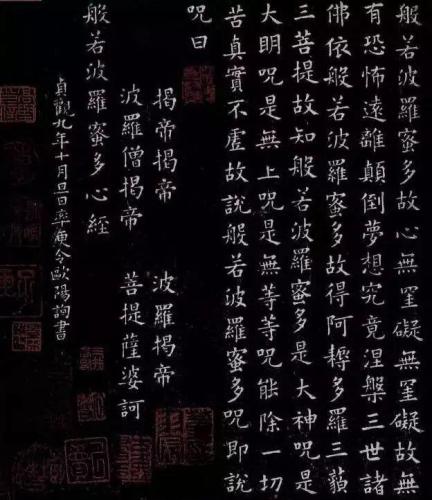 般若波羅蜜多故心無罣礙無罣礙故無
有恐怖遠離顛倒夢想究竟涅槃三世諸
佛依般若波羅蜜多故得阿耨多羅三藐
三菩提故知般若波羅蜜多是大神咒是
大明咒是無上咒是無等等咒能除一切
苦真實不虛故說般若波羅蜜多咒即說
咒曰
揭帝揭帝 波羅揭帝
波羅僧揭帝 菩提薩婆訶
般若波羅蜜多心經
貞觀九年十月旦日率更令歐陽詢書